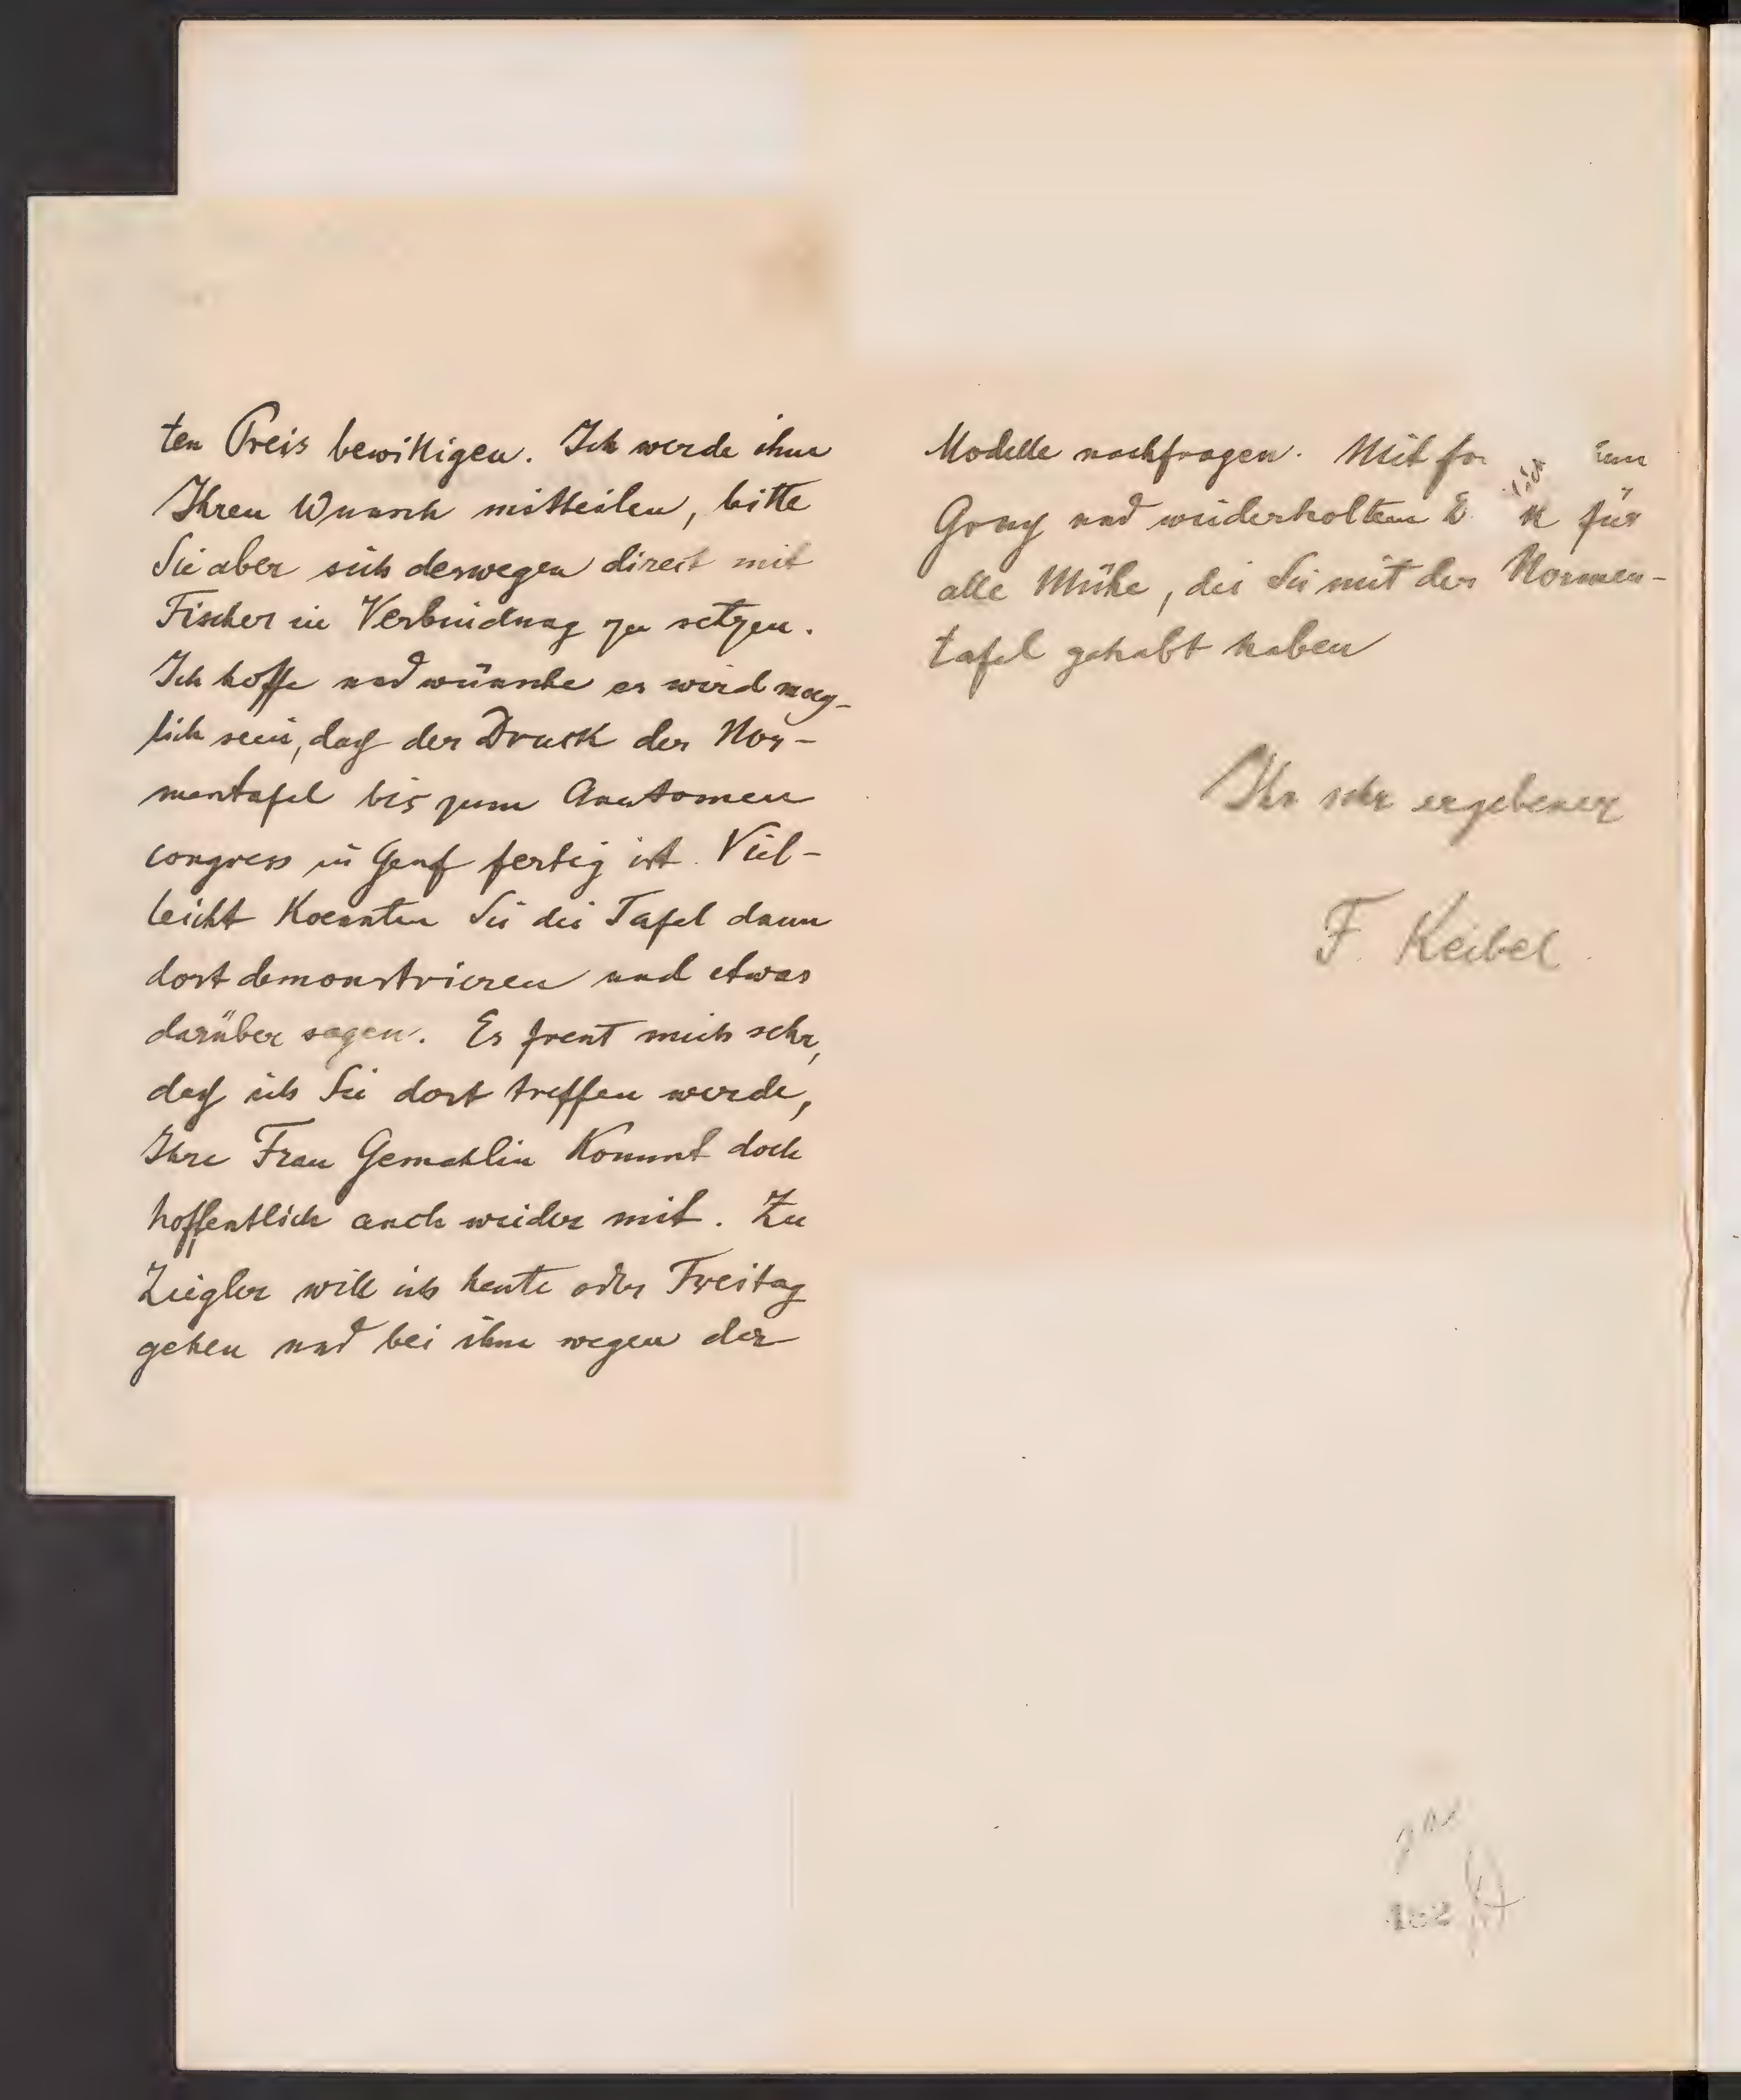 ten Preis bewilligen. Ich werde ihm
Ihren Wunsch mitteilen, bitte
Sie aber sich deswegen direct mit
Fischer in Verbindung zu setzen.
Ich hoffe und wünsche es wird moeg-
lich sein, daß der Druck der Nor-
mentafel bis zum Anatomen
congress in Genf fertig ist. Viel-
leicht koennten Sie die Tafel dann
dort demonstrieren und etwas
darüber sagen. Es freut mich sehr,
daß ich Sie dort treffen werde,
Ihre Frau Gemahlin kommt doch
hoffentlich auch wieder mit. Zu
Ziegler will ich heute oder Freitag
gehen und bei ihm wegen der
Modelle nachfragen. Mit
und wiederholtem für
alle Mühe, die Sie mit der Normen-
tafel gehabt haben
Ihr sehr ergebener
F. Keibel